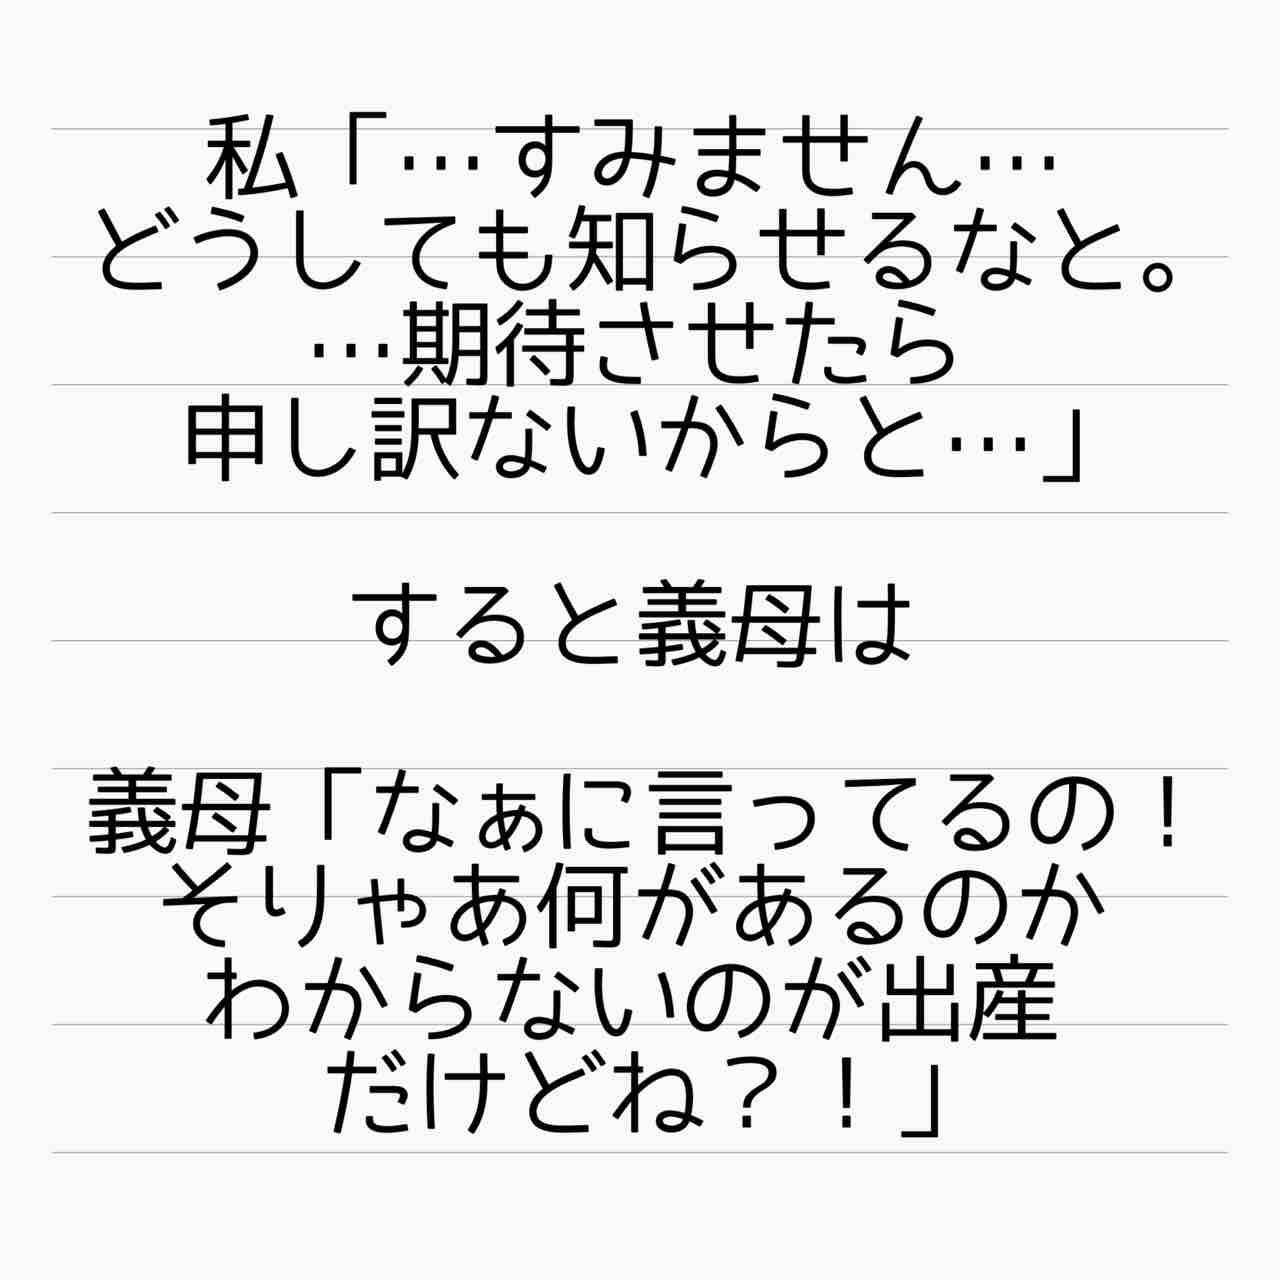 私「…すみません…
どうしても知らせるなと。
…期待させたら
申し訳ないからと…」
すると義母は
義母「なぁに言ってるの！
そりゃあ何があるのか
わからないのが出産
だけどね？！」